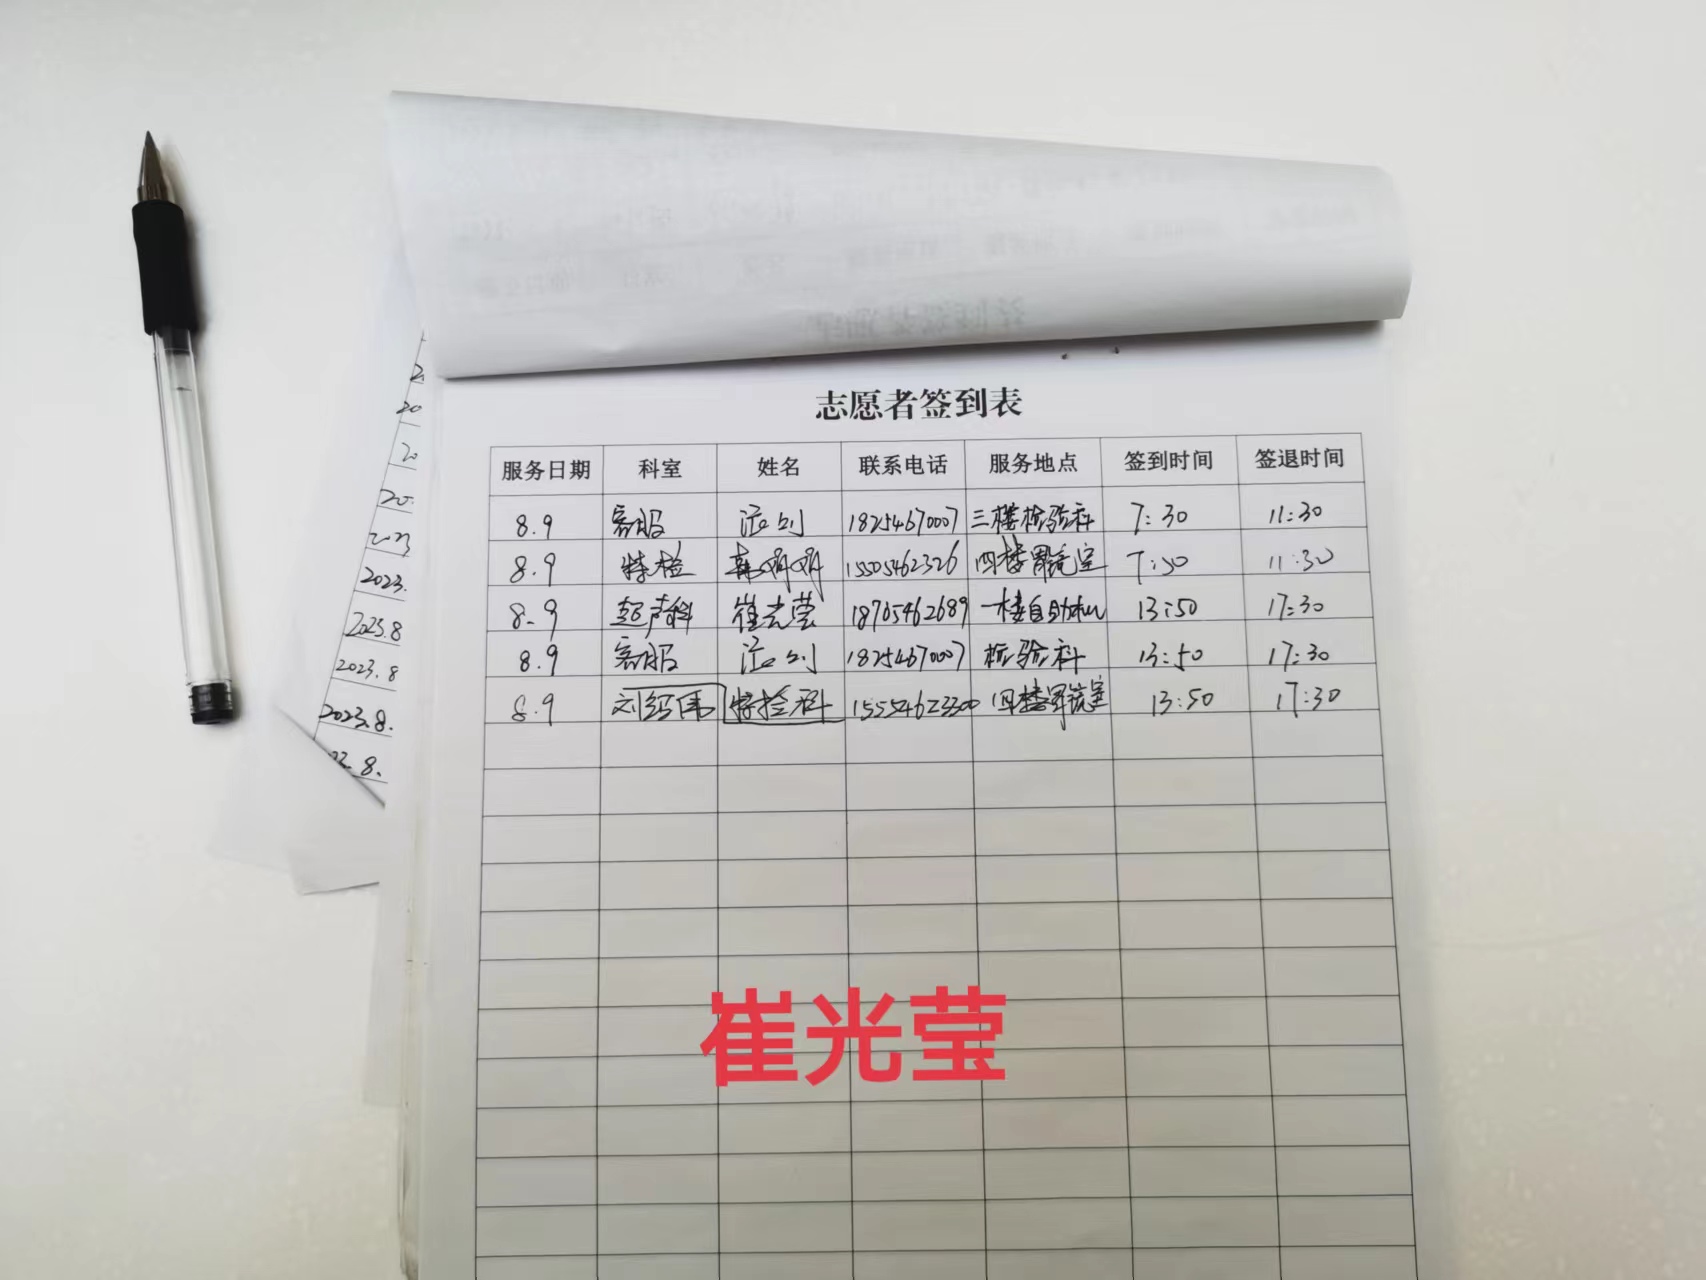 志愿者签到表
服务日期 科室 姓名 联系电话 服务地点 签到时间 签退时间
8.9 客服 18254670007 三楼检验科 7:30 11:30
8.9 特检 15505462326 四楼胃镜室 7:30 11:30
8.9 超声科 崔光莹 18765462689 一楼自助机 13:50 17:30
8.9 客服 18254670007 检验科 13:50 17:30
8.9 刘红伟 特检科 15554623300 四楼胃镜室 13:50 17:30
20
20
20.
2023
2023.
2023.8
2023.8
2023.8.
23.8.
崔光莹